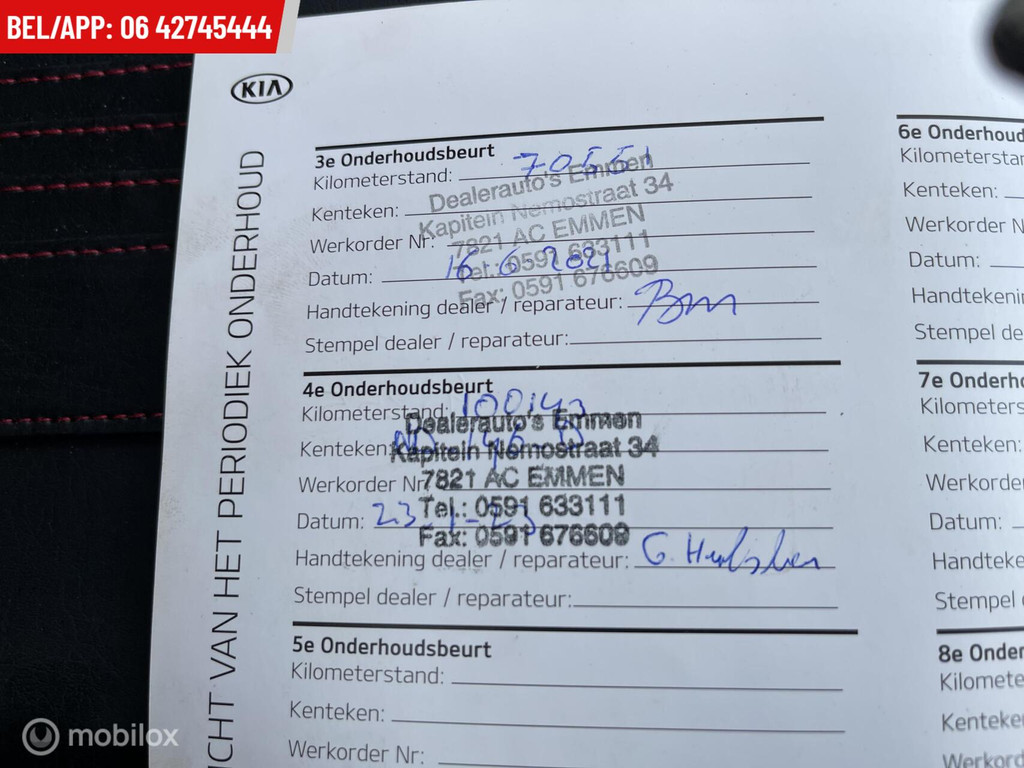 BEL/APP: 06 42745444
KIA
CHT VAN HET PERIODIEK ONDERHOUD
3e Onderhoudsbeurt
Kilometerstand: 70551
Dealerauto's Emmen
Kenteken:
Kapitein Nemostraat 34
Werkorder Nr:
7821 AC EMMEN
Tel.: 0591 633111
Datum: 16 6 2021
Fax: 0591 676609
Handtekening dealer / reparateur:
Stempel dealer / reparateur:
4e Onderhoudsbeurt
Kilometerstand: 100143
Dealerauto's Emmen
Kenteken:
Kapitein Nemostraat 34
Werkorder Nr
7821 AC EMMEN
Tel.: 0591 633111
Datum: 23-1-23
Fax: 0591 676609
Handtekening dealer / reparateur: G.
Stempel dealer / reparateur:
5e Onderhoudsbeurt
Kilometerstand:
Kenteken:
Werkorder Nr:
6e Onderhoud
Kilometerstan
Kenteken:
Werkorder N
Datum:
Handtekenin
Stempel de
7e Onderho
Kilometers
Kenteken:
Werkorder
Datum:
Handteke
Stempel
8e Onder
Kilomete
Kenteken
Werkord
mobilox